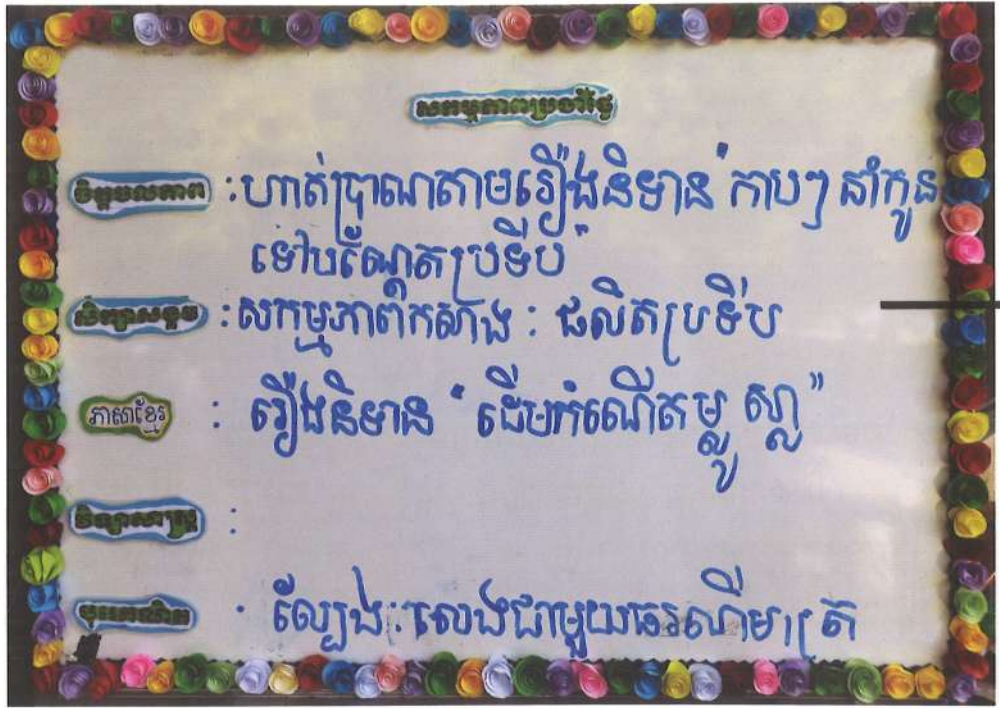 សកម្មភាពប្រចាំថ្ងៃ
ចិត្តចលភាព : ហាត់ប្រាណតាមរឿងនិទាន "កាបៗ នាំកូន
ទៅបណ្ដែតប្រទីប"
សិក្សាសង្គម : សកម្មភាពកសាង : ផលិតប្រទីប
ភាសាខ្មែរ : រឿងនិទាន "ដើមកំណើតម្លូ ស្លា"
វិទ្យាសាស្ត្រ :
បុរេគណិត : ល្បែង : លេងជាមួយធរណីមាត្រ